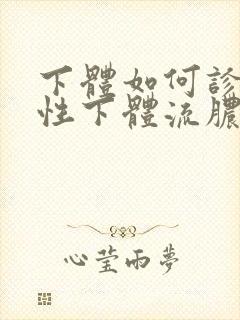 下體如何診
性下體流膿
心莹雨夢